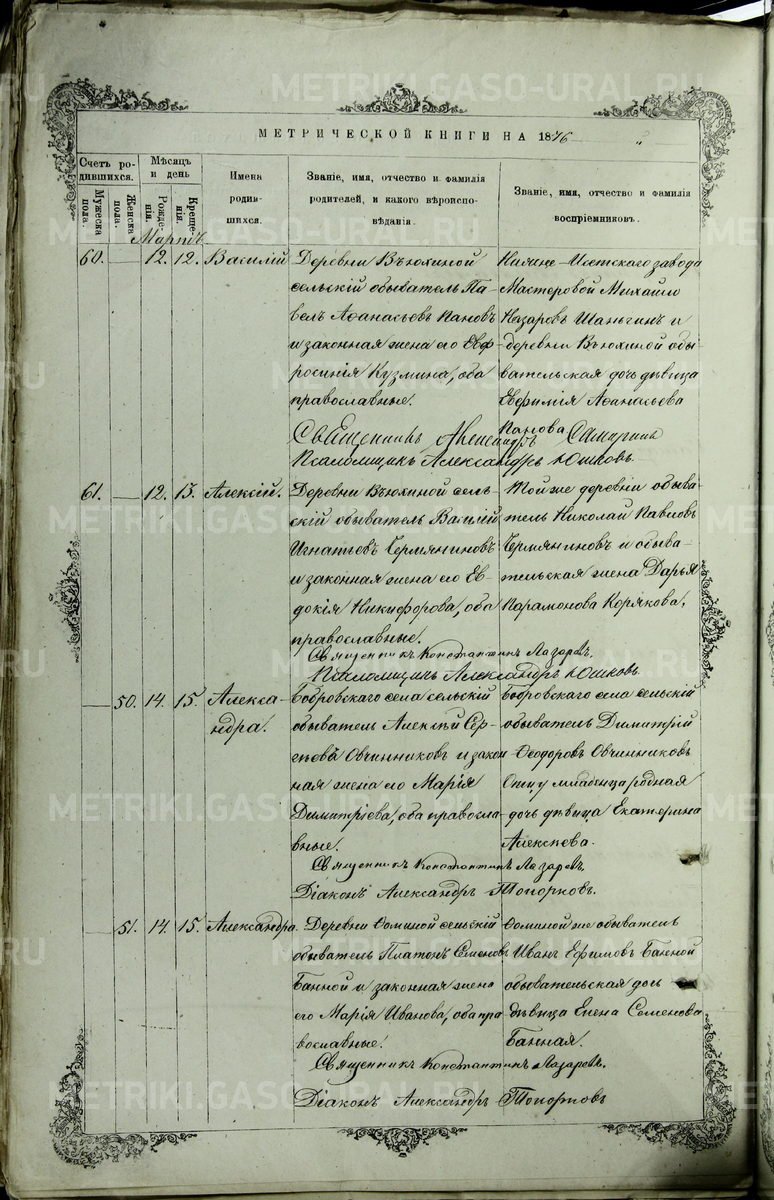 МЕТРИЧЕСКОЙ КНИГИ НА 1876
Счетъ ро-
дившихся.
Мужеска
пола.
Женска
пола.
Мѣсяцъ
и день
Рожде-
нія.
Креще-
нія.
Имена
родив-
шихся.
Званіе, имя, отчество и фамилія
родителей, и какого вѣроиспо-
вѣданія.
Званіе, имя, отчество и фамилія
воспріемниковъ.
Мартъ
60. 12. 12. Василій
Деревни Вьюхиной
сельскій обыватель Па-
велъ Аѳанасьевъ Пановъ
и законная жена его Евф-
росинія Кузмина, оба
православные.
Нижне-Исетскаго завода
Мастеровой Михайло
Назаровъ Шаньгинъ и
деревни Вьюхиной обы-
вательская дочь дѣвица
Евфимія Аѳанасьева
Панова
Священникъ Александръ
Псаломщикъ Александръ Юшковъ.
61. 12. 13. Алексій.
Деревни Вьюхиной сель-
скій обыватель Василій
Игнатьевъ Чермяниновъ
и законная жена его Ев-
докія Никифорова, оба
православные.
Той же деревни обыва-
тель Николай Павловъ
Чермяниновъ и обыва-
тельская жена Дарья
Парамонова Корякова.
Священникъ Константинъ Лазаревъ.
Псаломщикъ Александръ Юшковъ
50. 14. 15. Алекса-
ндра.
Бобровскаго села сельскій
обыватель Алексѣй Сер-
гѣевъ Овчинниковъ и закон
ная жена его Марія
Димитріева, оба правосла-
вные.
Бобровскаго села сельскій
обыватель Димитрій
Ѳеодоровъ Овчинниковъ
Отцу младенца родная
дочь дѣвица Екатерина
Алексѣева.
Священникъ Константинъ Лазаревъ.
Діаконъ Александръ Топорковъ.
51. 14. 15. Александра.
Деревни Ѳоминой сельскій
обыватель Платонъ Семеновъ
Банной и законная жена
его Марія Иванова, оба пра
вославные.
Ѳоминой же обыватель
Иванъ Ефимовъ Банной
обывательская дочь
дѣвица Елена Семенова
Банная.
Священникъ Константинъ Лазаревъ.
Діаконъ Александръ Топорковъ
METRIKI.GASO-URAL.RU